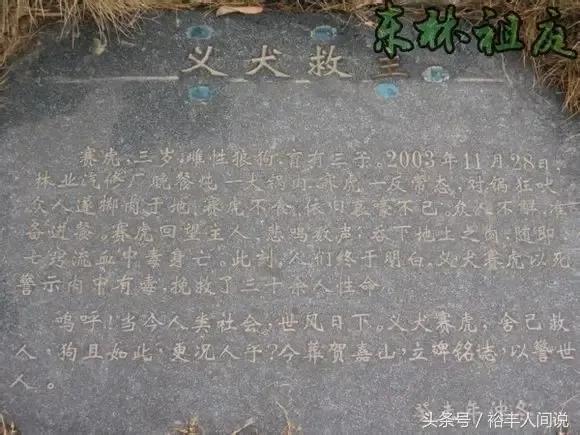 东林祖庭
义犬救主
赛虎，三岁，雌性狼狗，育有三子。2003年11月28日，
林业汽修厂晚餐炖一大锅肉，赛虎一反常态，对锅狂吠，
众人遂掷肉于地，赛虎不食，依旧哀嚎不已。众人不解，准
备进餐。赛虎回望主人，悲鸣数声，吞下地上之肉，随即
七窍流血中毒身亡。此刻，人们终于明白，义犬赛虎以死
警示肉中有毒，挽救了三十余人性命。
呜呼！当今人类社会，世风日下。义犬赛虎，舍己救
人，狗且如此，更况人乎？今葬贺嘉山，立碑铭志，以警世
人。
癸未年
头条号／裕丰人间说